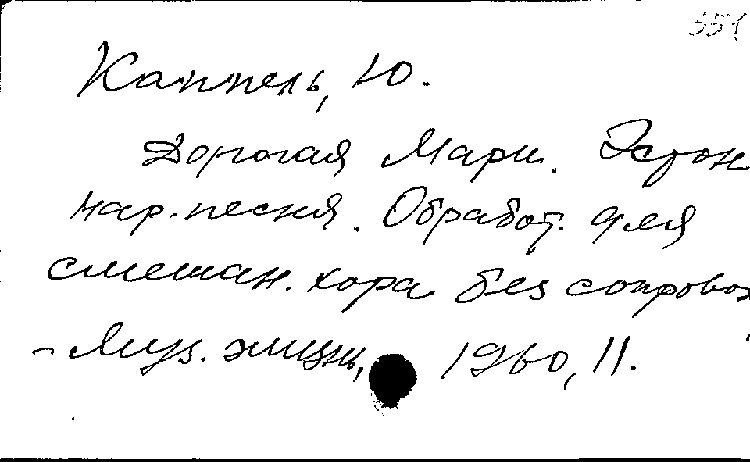 551
Каппель, Ю.
Дорогая Мари. Эстон
нар. песня. Обработ. для
смешан. хора без сопровож
- Муз. жизнь, 1960, 11.